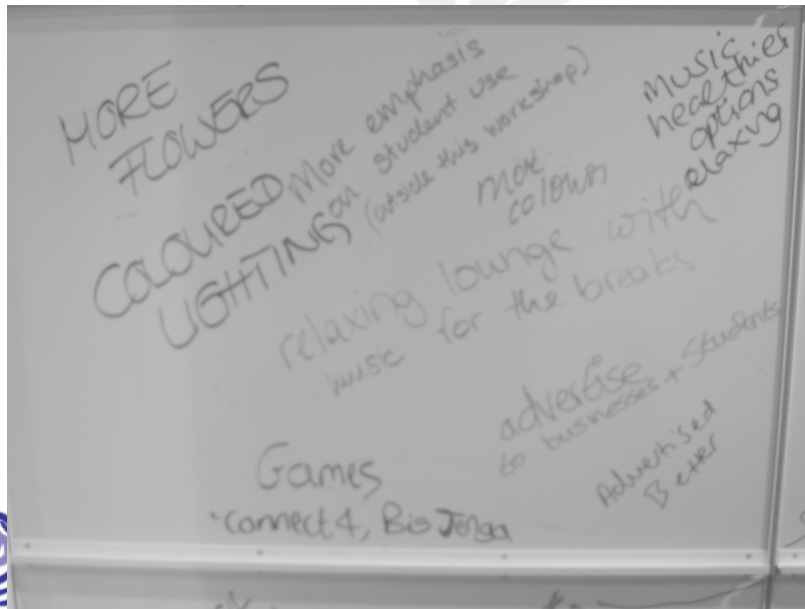 MORE
FLOWERS
COLOURED
LIGHTING
More emphasis
on student use
(outside this workshop)
more
colour
music
healthier
options
relaxing
relaxing lounge with
music for the breaks
advertise
to businesses + students
Advertised
Better
Games
Connect 4, Big Jenga